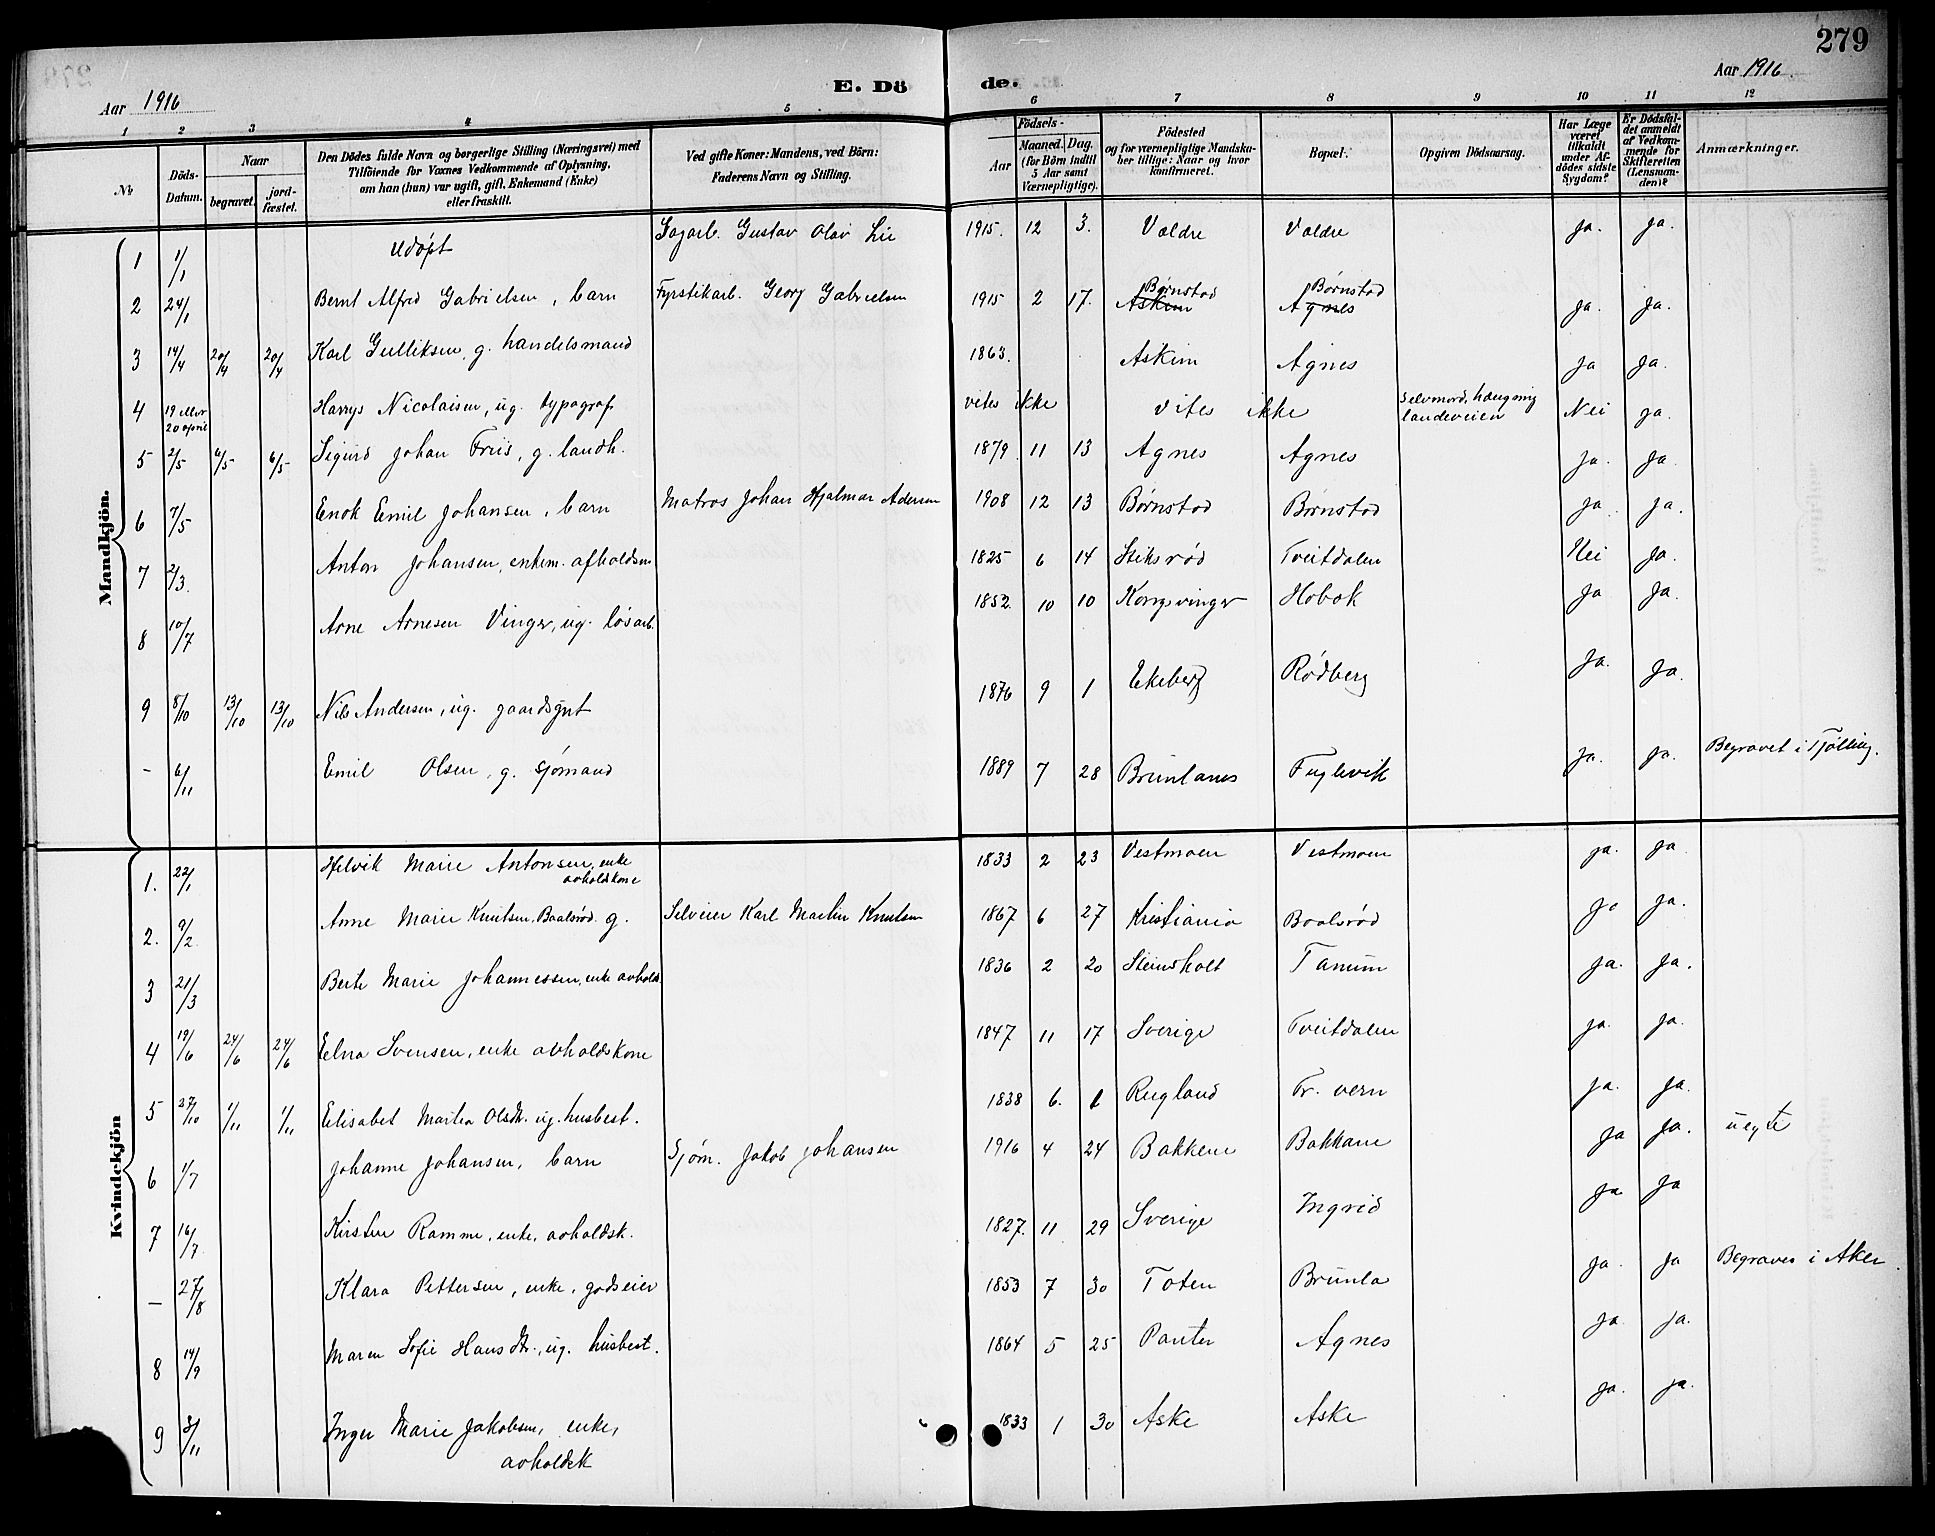 279
Aar 1916
E. Dö de.
Aar 1916.
1 2 3 4 5 6 7 8 9 10 11 12
No
Döds-Datum.
Naar
begravet. jord-fæstet.
Den Dödes fulde Navn og borgerlige Stilling (Næringsvei) med
Tilföiende for Voxnes Vedkommende af Oplysning,
om han (hun) var ugift, gift, Enkemand (Enke)
eller fraskilt.
Ved gifte Koner: Mandens, ved Börn:
Faderens Navn og Stilling.
Födsels-
Aar
Maaned. Dag.
(for Börn indtil
5 Aar samt
Værnepligtige).
Födested
og for værnepligtige Mandska-
ber tillige: Naar og hvor
konfirmeret.
Bopæl.
Opgiven Dödsaarsag.
Har Læge
været
tilkaldt
under Af-
dödes sidste
Sygdom?
Er Dödsfal-
det anmeldt
af Vedkom-
mende for
Skifteretten
(Lensman-
den)?
Anmærkninger.
Mandkjön.
1 1/1 Udöpt Sagarb. Gustav Olav Lie 1915. 12 3. Valdre Valdre Ja. Ja.
2 24/1 Bernt Alfred Gabrielsen, barn Fyrstikarb. Georg Gabrielsen 1915 2 17. Askim Børnstad Agnes Børnstad Ja. Ja.
3 14/4 20/4 20/4 Karl Gulliksen, g. handelsmand 1863. Askim Agnes Ja Ja.
4 19 Mar 20 april Harrys Nicolaisen, ug. typograf vites ikke vites ikke Selvmord, hængning landeveien Nei Ja.
5 2/5 6/5 6/5 Sigurd Johan Friis, g. landh. 1879 11 13 Agnes Agnes Ja. Ja.
6 7/5 Enok Emil Johansen, barn Matros Johan Hjalmar Adersen 1908 12 13 Børnstad Børnstad Ja Ja.
7 2/3. Anton Johansen, enkem. afholdsm 1825 6 14 Stiksrød Tveitdalen Nei Ja.
8 10/7 Arne Arnesen Vinger, ug. løsarb. 1852. 10 10 Kongsvinger Hobæk Ja Ja.
9 8/10 13/10 13/10 Nils Andersen, ug. gaardsgut 1876 9 1 Ekeberg Rødberg Ja. Ja.
- 6/11 Emil Olsen, g. sjømand 1889 7 28 Brunlanes Fuglevik Ja. Ja. Begravet i Tjølling.
Kvindekjön
1. 22/1 Helvik Marie Antonsen, enke avholdskone 1833 2 23 Vestmoen Vestmoen Ja. Ja
2. 9/2. Anne Marie Knutsen. Baalsrød. g. Selveier Karl Martin Knutsen 1867 6 27 Kristiania Baalsrød Ja Ja.
3 21/3 Berte Marie Johannessen, enke avholdsk. 1836 2 20 Steinsholt Tanum Ja. Ja.
4 19/6 24/6 24/6 Elna Svensen, enke avholdskone 1847 11 17 Sverige Tveitdalen Ja. Ja.
5 27/10 1/11 1/11 Elisabet Martea Olsdtr. ug. husbest. 1838 6. 1 Rugland Fr. vern Ja. Ja.
6 1/7 Johanne Johansen, barn Sjøm. Jakob Johansen 1916 4 24 Bakkene Bakkane Ja Ja. uegte
7 16/7. Kirsten Ramme, enke, avholdsk. 1827. 11 29 Sverige Ingrid Ja Ja
- 27/8 Klara Pettersen, enke, godseier 1853 7 30 Toten Brunla Ja. Ja Begraves i Aker.
8 14/9 Maren Sofie Hansdtr., ug. husbest. 1864 5 25 Panter Agnes Ja. Ja.
9 3/11 Inger Marie Jakobsen, enke, avholdsk 1833 1 30 Aske Aske Ja. Ja.